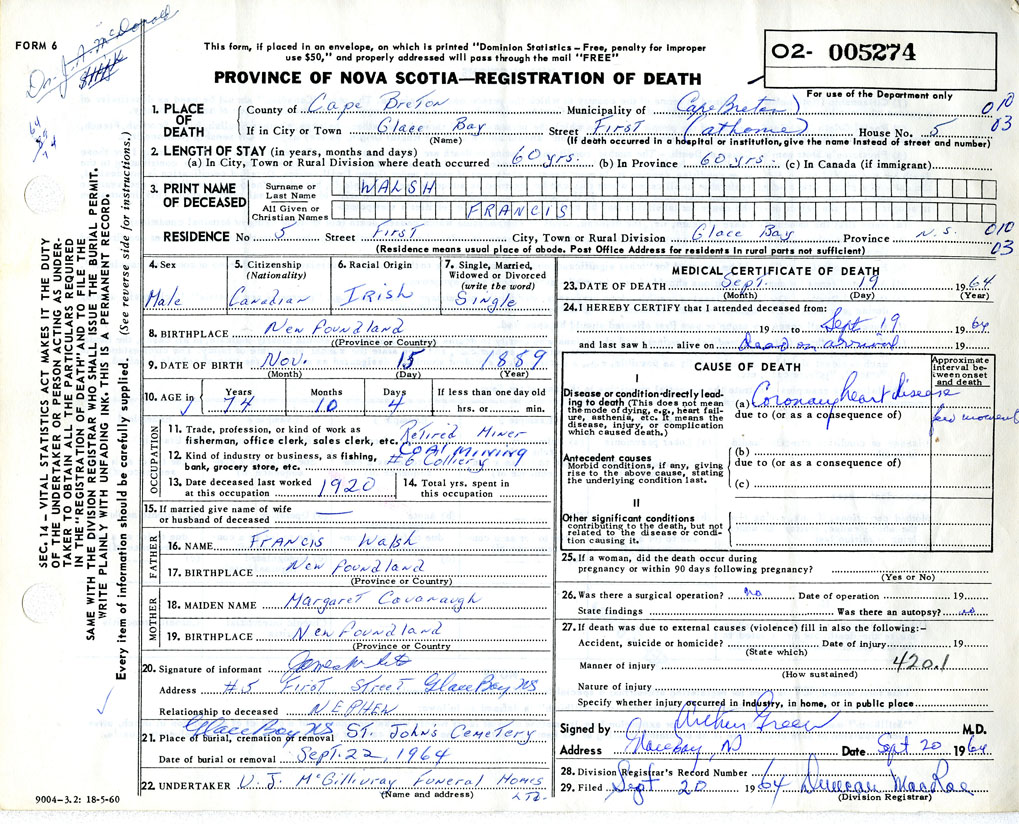 FORM 6
Dr. J. A. McDonald
This form, if placed in an envelope, on which is printed "Dominion Statistics – Free, penalty for improper
use $50," and properly addressed will pass through the mail "FREE"
PROVINCE OF NOVA SCOTIA—REGISTRATION OF DEATH
O2- 005274
For use of the Department only
1. PLACE OF DEATH
County of Cape Breton Municipality of Cape Breton 010
If in City or Town Glace Bay Street First (at home) House No. 5 03
(Name) (If death occurred in a hospital or institution, give the name instead of street and number)
2. LENGTH OF STAY (in years, months and days)
(a) In City, Town or Rural Division where death occurred 60 yrs. (b) In Province 60 yrs. (c) In Canada (if immigrant)
3. PRINT NAME OF DECEASED
Surname or Last Name WALSH
All Given or Christian Names FRANCIS
RESIDENCE No 5 Street First City, Town or Rural Division Glace Bay Province N.S. 010
(Residence means usual place of abode. Post Office Address for residents in rural parts not sufficient) 03
4. Sex
Male
5. Citizenship
(Nationality)
Canadian
6. Racial Origin
Irish
7. Single, Married,
Widowed or Divorced
(write the word)
Single
8. BIRTHPLACE Newfoundland
(Province or Country)
9. DATE OF BIRTH Nov. 15 1889
(Month) (Day) (Year)
10. AGE in Years 74 Months 10 Days 4 If less than one day old
hrs. or min.
OCCUPATION
11. Trade, profession, or kind of work as
fisherman, office clerk, sales clerk, etc. Retired Miner
12. Kind of industry or business, as fishing, Coal Mining
bank, grocery store, etc. #6 Colliery
13. Date deceased last worked
at this occupation 1920
14. Total yrs. spent in
this occupation
15. If married give name of wife
or husband of deceased —
FATHER
16. NAME Francis Walsh
17. BIRTHPLACE Newfoundland
(Province or Country)
MOTHER
18. MAIDEN NAME Margaret Cavanaugh
19. BIRTHPLACE Newfoundland
(Province or Country)
20. Signature of informant
Address #5 First Street Glace Bay NS
Relationship to deceased NEPHEW
Glace Bay NS
21. Place of burial, cremation or removal St. John's Cemetery
Date of burial or removal Sept. 22, 1964
22. UNDERTAKER V. J. McGillivray Funeral Homes
(Name and address) LTD.
9004–3.2: 18-5-60
MEDICAL CERTIFICATE OF DEATH
23. DATE OF DEATH Sept. 19 1964
(Month) (Day) (Year)
24. I HEREBY CERTIFY that I attended deceased from:
19 to Sept 19 1964
and last saw h alive on Dead on arrival 19
CAUSE OF DEATH
Approximate interval between onset and death
I
Disease or condition directly leading to death (This does not mean
the mode of dying, e.g., heart failure, asthenia, etc. It means the
disease, injury, or complication
which caused death.)
(a) Coronary heart disease
due to (or as a consequence of) few moments
Antecedent causes
Morbid conditions, if any, giving
rise to the above cause, stating
the underlying condition last.
(b)
due to (or as a consequence of)
(c)
II
Other significant conditions
contributing to the death, but not
related to the disease or condition causing it.
25. If a woman, did the death occur during
pregnancy or within 90 days following pregnancy?
(Yes or No)
26. Was there a surgical operation? no Date of operation 19
State findings Was there an autopsy? no
27. If death was due to external causes (violence) fill in also the following:–
Accident, suicide or homicide? Date of injury 19
(State which)
Manner of injury 420.1
(How sustained)
Nature of injury
Specify whether injury occurred in Industry, in home, or in public place
Signed by Arthur Green M.D.
Address Glace Bay, NS Date Sept 20 1964
28. Division Registrar's Record Number
29. Filed Sept 20 1964 Duncan MacRae
(Division Registrar)
SEC. 14 – VITAL STATISTICS ACT MAKES IT THE DUTY
OF THE UNDERTAKER OR PERSON ACTING AS UNDERTAKER TO OBTAIN ALL THE PARTICULARS REQUIRED
IN THE "REGISTRATION OF DEATH" AND TO FILE THE
SAME WITH THE DIVISION REGISTRAR WHO SHALL ISSUE THE BURIAL PERMIT.
WRITE PLAINLY WITH UNFADING INK. THIS IS A PERMANENT RECORD.
Every item of information should be carefully supplied. (See reverse side for instructions.)